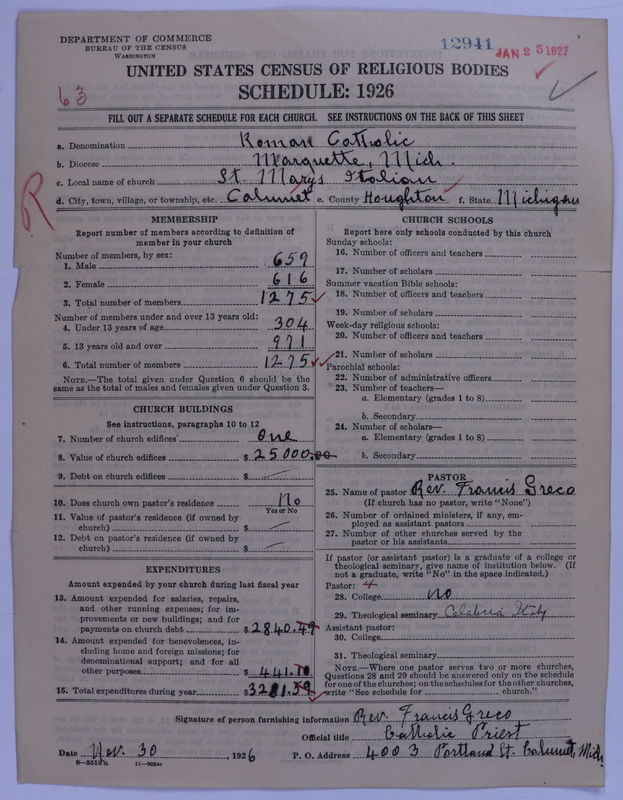 DEPARTMENT OF COMMERCE
BUREAU OF THE CENSUS
WASHINGTON
12941
JAN 25 1927
UNITED STATES CENSUS OF RELIGIOUS BODIES
SCHEDULE: 1926
63
FILL OUT A SEPARATE SCHEDULE FOR EACH CHURCH. SEE INSTRUCTIONS ON THE BACK OF THIS SHEET
R
a. Denomination Roman Catholic
b. Diocese Marquette, Mich.
c. Local name of church St. Marys Italian
d. City, town, village, or township, etc. Calumet e. County Houghton f. State Michigan
MEMBERSHIP
Report number of members according to definition of
member in your church
Number of members, by sex:
1. Male 659
2. Female 616
3. Total number of members 1275
Number of members under and over 13 years old:
4. Under 13 years of age 304
5. 13 years old and over 971
6. Total number of members 1275
NOTE.—The total given under Question 6 should be the
same as the total of males and females given under Question 3.
CHURCH BUILDINGS
See instructions, paragraphs 10 to 12
7. Number of church edifices One
8. Value of church edifices $ 25000.00
9. Debt on church edifices $
10. Does church own pastor's residence No
Yes or No
11. Value of pastor's residence (if owned by
church) $
12. Debt on pastor's residence (if owned by
church) $
EXPENDITURES
Amount expended by your church during last fiscal year
13. Amount expended for salaries, repairs,
and other running expenses; for im-
provements or new buildings; and for
payments on church debt $ 2840.49
14. Amount expended for benevolences, in-
cluding home and foreign missions; for
denominational support; and for all
other purposes $ 441.10
15. Total expenditures during year $ 3281.59
CHURCH SCHOOLS
Report here only schools conducted by this church
Sunday schools:
16. Number of officers and teachers
17. Number of scholars
Summer vacation Bible schools:
18. Number of officers and teachers
19. Number of scholars
Week-day religious schools:
20. Number of officers and teachers
21. Number of scholars
Parochial schools:
22. Number of administrative officers
23. Number of teachers—
a. Elementary (grades 1 to 8)
b. Secondary
24. Number of scholars—
a. Elementary (grades 1 to 8)
b. Secondary
PASTOR
25. Name of pastor Rev. Francis Greco
(If church has no pastor, write "None")
26. Number of ordained ministers, if any, em-
ployed as assistant pastors
27. Number of other churches served by the
pastor or his assistants
If pastor (or assistant pastor) is a graduate of a college or
theological seminary, give name of institution below. (If
not a graduate, write "No" in the space indicated.)
Pastor: 4
28. College no
29. Theological seminary Calabria Italy
Assistant pastor:
30. College
31. Theological seminary
NOTE.—Where one pastor serves two or more churches,
Questions 28 and 29 should be answered only on the schedule
for one of the churches; on the schedules for the other churches,
write "See schedule for church."
Signature of person furnishing information Rev. Francis Greco
Official title Catholic Priest
Date Nov. 30, 1926 P. O. Address 4003 Portland St. Calumet, Mich.
8—5318a 11—9664